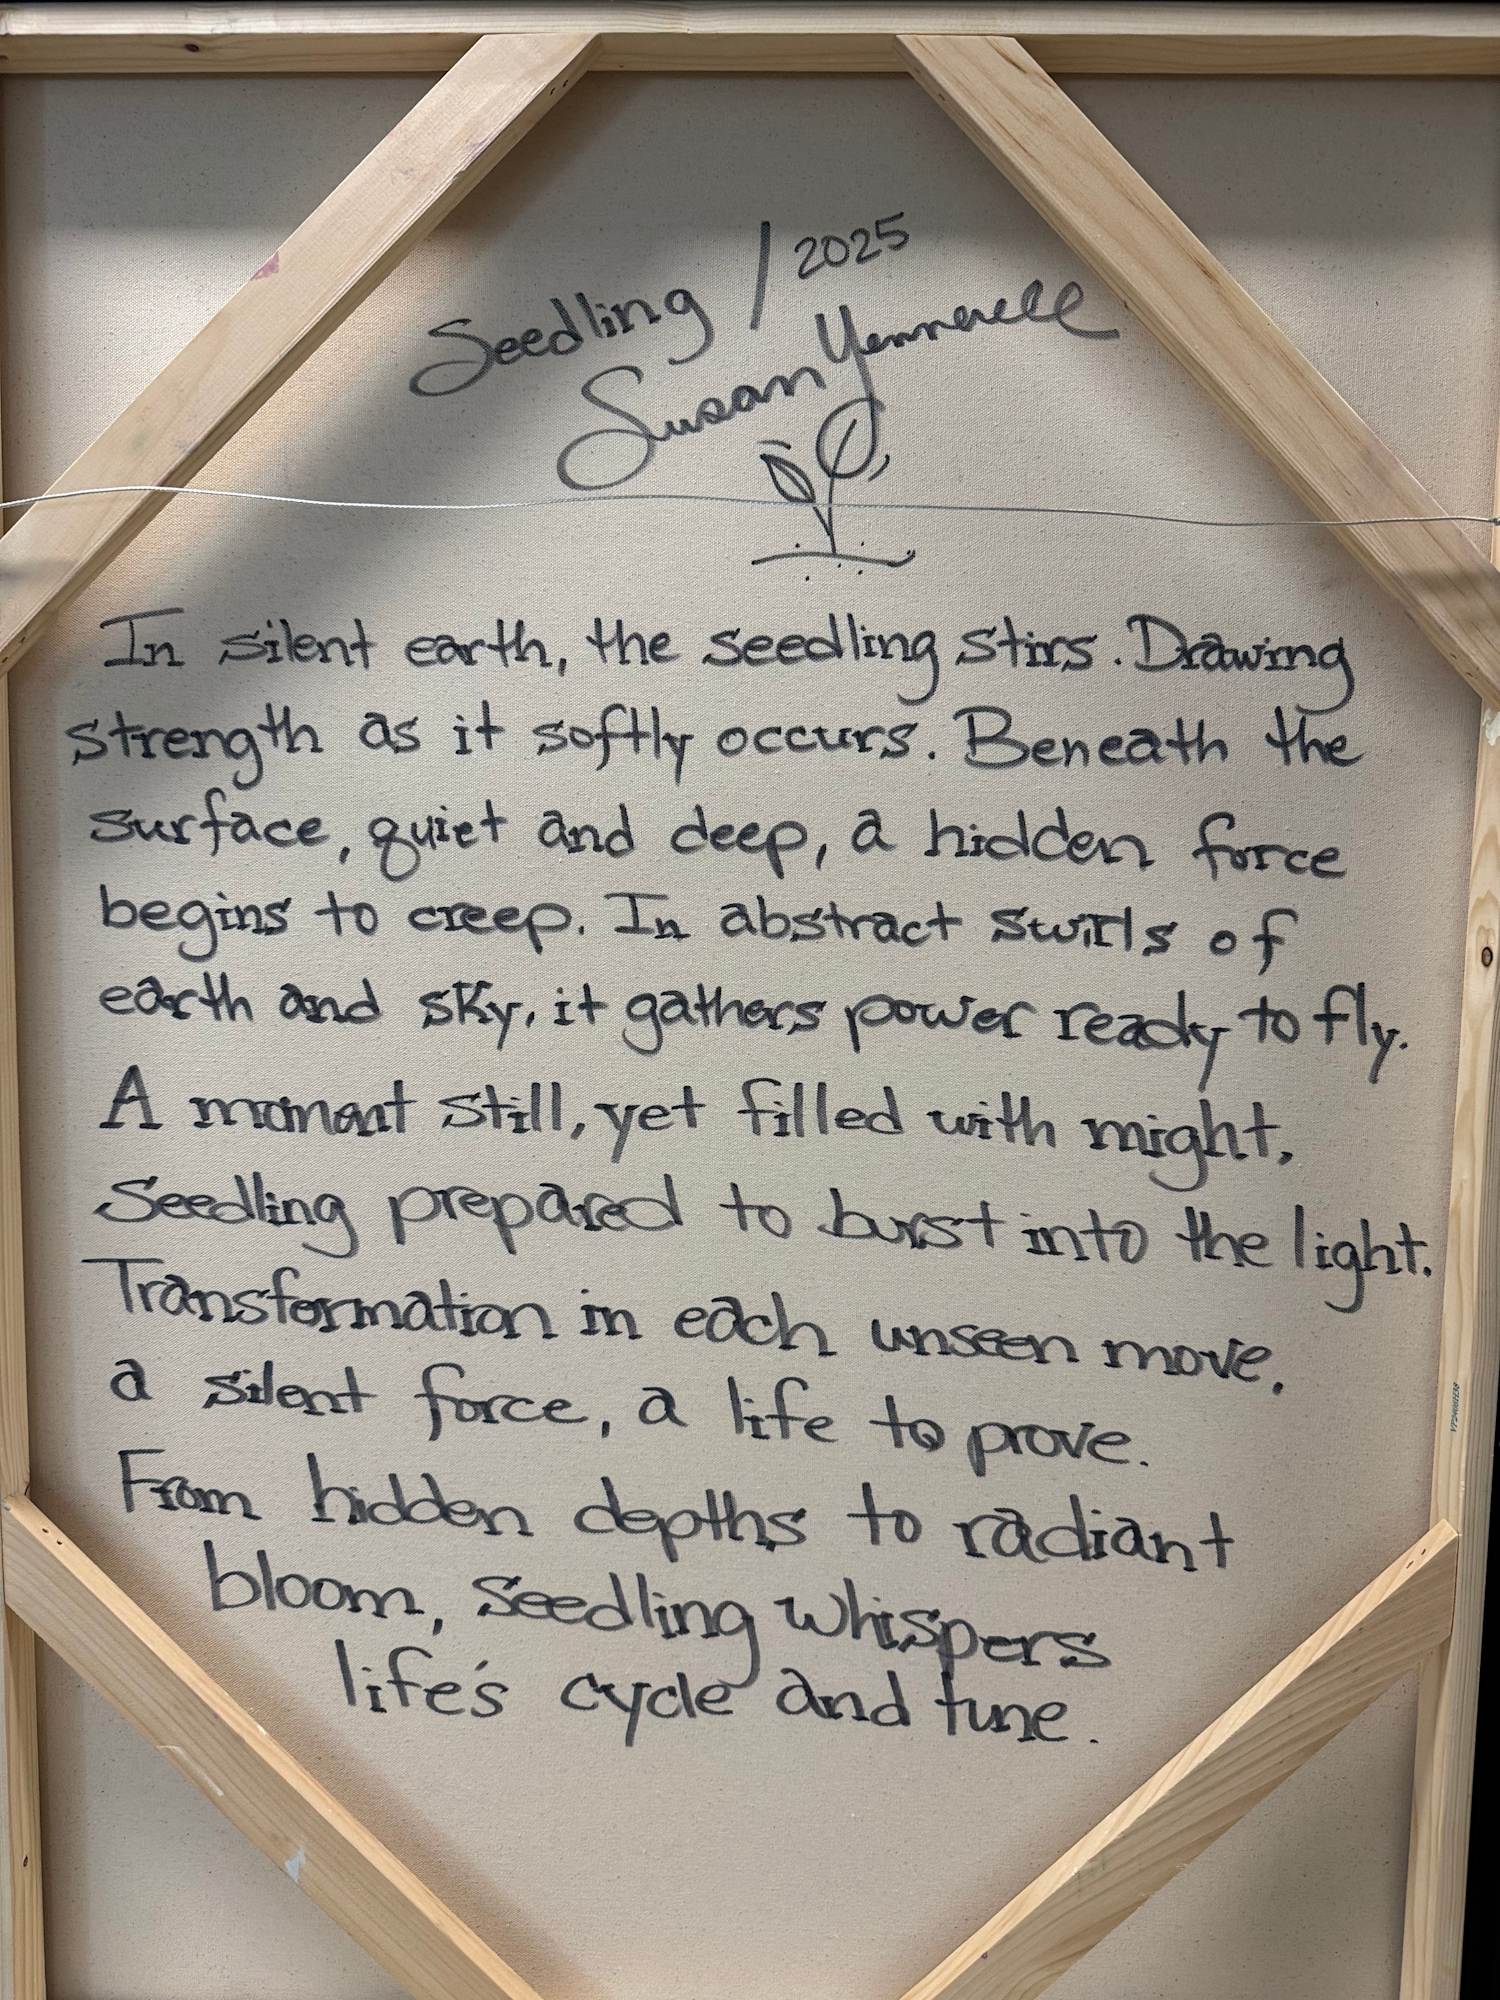 Seedling / 2025
Susan Yennerell
In silent earth, the seedling stirs. Drawing
strength as it softly occurs. Beneath the
surface, quiet and deep, a hidden force
begins to creep. In abstract swirls of
earth and sky, it gathers power ready to fly.
A moment still, yet filled with might,
Seedling prepared to burst into the light.
Transformation in each unseen move,
a silent force, a life to prove.
From hidden depths to radiant
bloom, Seedling whispers
life's cycle and tune.